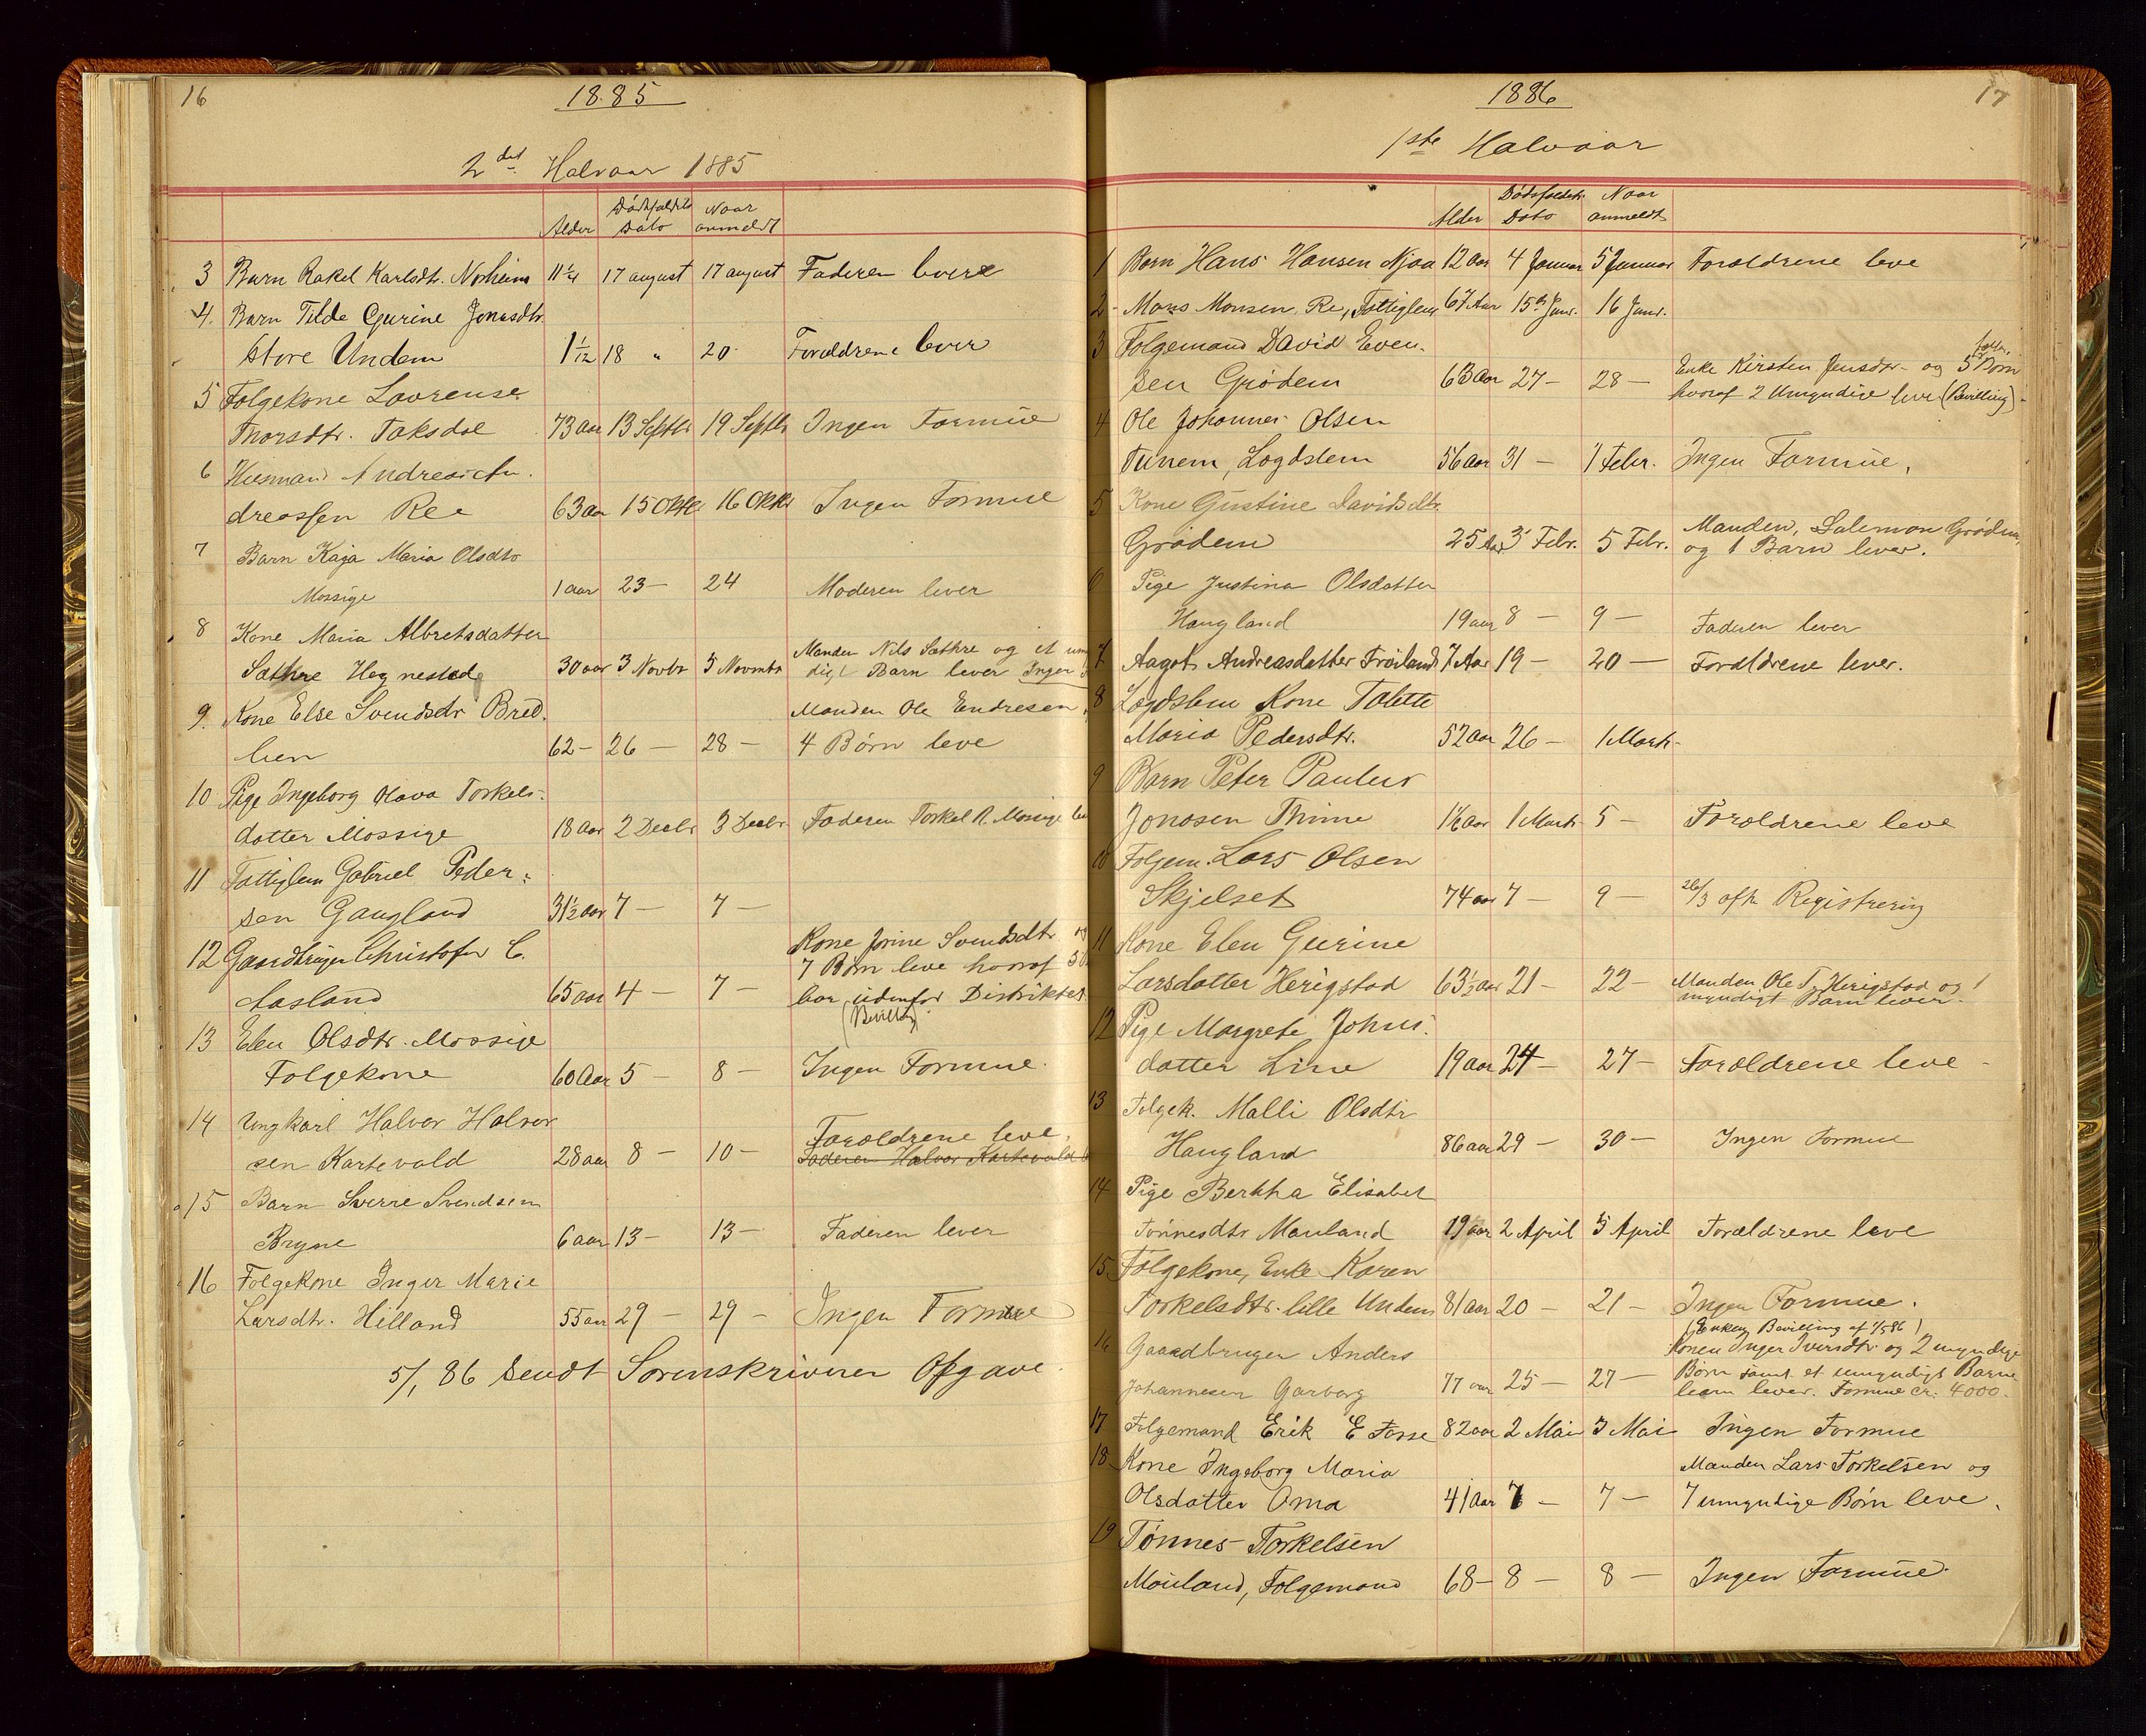 16
1885
2det Halvaar 1885
Alder
Dødsfaldets Dato
Naar anmeldt
3 Barn Rakel Karlsdtr. Norheim 11 1/4 17 august 17 august Faderen lever
4. Barn Tilde Gurine Jonasdtr.
Store Undem 1 1/12 18 " 20 Forældrene lever
5 Folgekone Lavrense
Thorsdtr. Taksdal 73 aar 13 Septbr 19 Septbr Ingen Formue
6 Husmand Andreas An-
dreassen Ree 63 aar 15 Oktbr 16 Oktbr Ingen Formue
7 Barn Kaja Maria Olsdtr
Mossige 1 aar 23 — 24 Moderen lever
8 Kone Maria Albretsdatter
Sæthre Hognestad 30 aar 3 Novbr 5 Novmbr Manden Nils Sæthre og et um
digt Barn lever Ingen
9. Kone Else Svendsdr Bred.
lien 62 — 26 — 28 — Manden Ole Endresen
4 Børn leve
10 Pige Ingeborg Olava Torkels-
datter Mossige 18 Aar 2 Decbr 3 Decbr. Faderen Torkel R. Mossige
11 Fattiglem Gabriel Peder-
sen Gaugland 31 1/2 aar 7 — 7 —
12 Gaardbruger Christofer C.
Aasland 65 aar 4 — 7 — Kone Jorine Svendsdtr og
7 Børn leve hvoraf 5
bor udenfor Distriktet
(Bevilling)
13 Elen Olsdtr. Mossige
Folgekone 60 Aar 5 — 8 — Ingen Formue.
14 Ungkarl Halvor Halvor
sen Kartevold 28 aar 8 — 10 — Forældrene leve.
Faderen Halvor Kartevold
15 Barn Sverre Svendsen
Bryne 6 aar 13 — 13 — Faderen lever
16 Folgekone Inger Marie
Larsdtr. Hilland 55 aar 29 — 29 — Ingen Formue
5/1 86 Sendt Sorenskriveren Opgave.
17
1886
1ste Halvaar
Alder
Dødsfaldets Dato
Naar anmeldt
1 Barn Hans Hansen Njaa 12 aar 4 Januar 5 Januar Forældrene leve
2 - Mons Monsen Re, Fattiglem 67 Aar 15de Janr. 16 Janr.
3 Folgemand David Even-
sen Grødem 63 Aar 27 — 28 — Enke Kirsten Jensdtr. og 5 Børn
hvoraf 2 Umyndige leve (Bevilling).
4 Ole Johannes Olsen
Tunem, Lægdslem 56 aar 31 — 1 Febr. Ingen Formue.
5 Kone Gustine Davidsdtr.
Grødem 25 Aar 3 Febr. 5 Febr. Manden, Salemon Grødem,
og 1 Barn lever.
6 Pige Justina Olsdatter
Haugland 19 aar 8 — 9 — Faderen lever
7 Aagot Andreasdatter Frøiland 7 Aar 19 — 20 — Forældrene lever.
8 Lægdslem Kone Talette
Maria Pedersdtr. 52 aar 26 — 1 Marts
9 Barn Peter Paulus
Jonasen Thime 1 1/2 aar 1 Marts 5 — Forældrene leve
10 Folgem. Lars Olsen
Skjelset 74 aar 7 — 9 — 26/3 afh. Registrering
11 Kone Elen Gurine
Larsdatter Herigstad 63 1/2 aar 21 — 22 — Manden Ole T. Herigstad og 1
myndigt Barn lever.
12 Pige Margrete Johns-
datter Line 19 aar 24 — 27 — Forældrene leve
13 Folgek. Malli Olsdtr
Haugland 86 aar 29 — 30 — Ingen Formue
14 Pige Bertha Elisabet
Tønnesdtr Mauland 19 aar 2 April 5 April Forældrene leve
15 Folgekone, Enke Karen
Torkelsdtr. lille Undem 81 aar 20 — 21 — Ingen Formue.
(Enken Bevilling af 1/5 86)
16 Gaardbruger Anders
Johannesen Garborg 77 aar 25 — 27 — Konen Inger Iversdtr og 2 myndige
Børn samt et umyndigt Barne
barn lever. Formue cr. 4000.
17 Folgemand Erik E Fosse 82 aar 2 Mai 3 Mai Ingen Formue
18 Kone Ingeborg Maria
Olsdatter Oma 41 Aar 7 — 7 — Manden Lars Torkelsen og
7 umyndige Børn leve.
19 Tønnes Torkelsen
Mauland, Folgemand 68 — 8 — 8 — Ingen Formue.